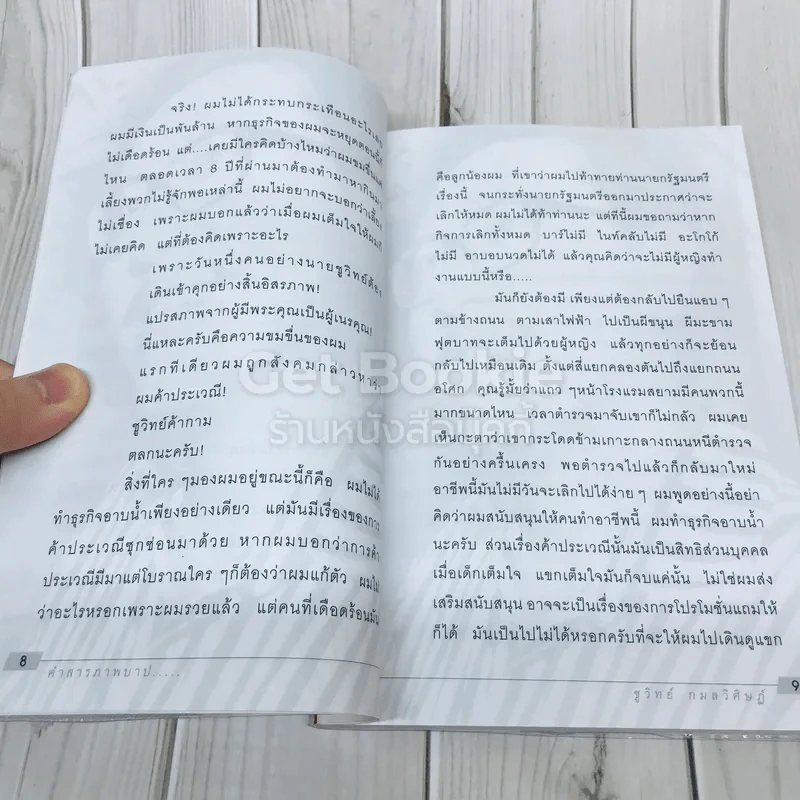 จริง! ผมไม่ได้กระทบกระเทือนอะไรเลย
ผมมีเงินเป็นพันล้าน หากธุรกิจของผมจะหยุดตอนนี้ก็
ไม่เดือดร้อน แต่....เคยมีใครคิดบ้างไหมว่าผมขมขื่นแค่
ไหน ตลอดเวลา 8 ปีที่ผ่านมาต้องทำมาหากินมา
เลี้ยงพวกไม่รู้จักพอเหล่านี้ ผมไม่อยากจะบอกว่า
ไม่เชื่อง เพราะผมบอกแล้วว่าเมื่อผมเต็มใจให้ผมก็
ไม่เคยคิด แต่ที่ต้องคิดเพราะอะไร
เพราะวันหนึ่งคนอย่างนายชูวิทย์ต้อง
เดินเข้าคุกอย่างสิ้นอิสรภาพ!
แปรสภาพจากผู้มีพระคุณเป็นผู้เนรคุณ!
นี่แหละครับคือความขมขื่นของผม
แรกทีเดียวผมถูกสังคมกล่าวหาว่า
ผมค้าประเวณี!
ชูวิทย์ค้ากาม
ตลกนะครับ!
สิ่งที่ใคร ๆมองผมอยู่ขณะนี้ก็คือ ผมไม่ได้
ทำธุรกิจอาบน้ำเพียงอย่างเดียว แต่มันมีเรื่องของการ
ค้าประเวณีซุกซ่อนมาด้วย หากผมบอกว่าการค้า
ประเวณีมีมาแต่โบราณใคร ๆก็ต้องว่าผมแก้ตัว ผมไม่
ว่าอะไรหรอกเพราะผมรวยแล้ว แต่คนที่เดือดร้อนมัน
8
คำสารภาพบาป.....
คือลูกน้องผม ที่เขาว่าผมไปท้าทายท่านนายกรัฐมนตรี
เรื่องนี้ จนกระทั่งนายกรัฐมนตรีออกมาประกาศว่าจะ
เลิกให้หมด ผมไม่ได้ท้าท่านนะ แต่ทีนี้ผมขอถามว่าหาก
กิจการเลิกทั้งหมด บาร์ไม่มี ไนท์คลับไม่มี อะโกโก้
ไม่มี อาบอบนวดไม่ได้ แล้วคุณคิดว่าจะไม่มีผู้หญิงทำ
งานแบบนี้หรือ.....
มันก็ยังต้องมี เพียงแต่ต้องกลับไปยืนแอบ ๆ
ตามข้างถนน ตามเสาไฟฟ้า ไปเป็นผีขนุน ผีมะขาม
ฟุตบาทจะเต็มไปด้วยผู้หญิง แล้วทุกอย่างก็จะย้อน
กลับไปเหมือนเดิม ตั้งแต่สี่แยกคลองตันไปถึงแยกถนน
อโศก คุณรู้มั้ยว่าแถว ๆหน้าโรงแรมสยามมีคนพวกนี้
มากขนาดไหน เวลาตำรวจมาจับเขาก็ไม่กลัว ผมเคย
เห็นกะตาว่าเขากระโดดข้ามเกาะกลางถนนหนีตำรวจ
กันอย่างครื้นเครง พอตำรวจไปแล้วก็กลับมาใหม่
อาชีพนี้มันไม่มีวันจะเลิกไปได้ง่าย ๆ ผมพูดอย่างนี้อย่า
คิดว่าผมสนับสนุนให้คนทำอาชีพนี้ ผมทำธุรกิจอาบน้ำ
นะครับ ส่วนเรื่องค้าประเวณีนั้นมันเป็นสิทธิส่วนบุคคล
เมื่อเด็กเต็มใจ แขกเต็มใจมันก็จบแค่นั้น ไม่ใช่ผมส่ง
เสริมสนับสนุน อาจจะเป็นเรื่องของการโปรโมชั่นแถมให้
ก็ได้ มันเป็นไปไม่ได้หรอกครับที่จะให้ผมไปเดินดูแขก
ชูวิทย์ กมลวิศิษฎ์
9
Get Bookie
ร้านหนังสือมุกกี้